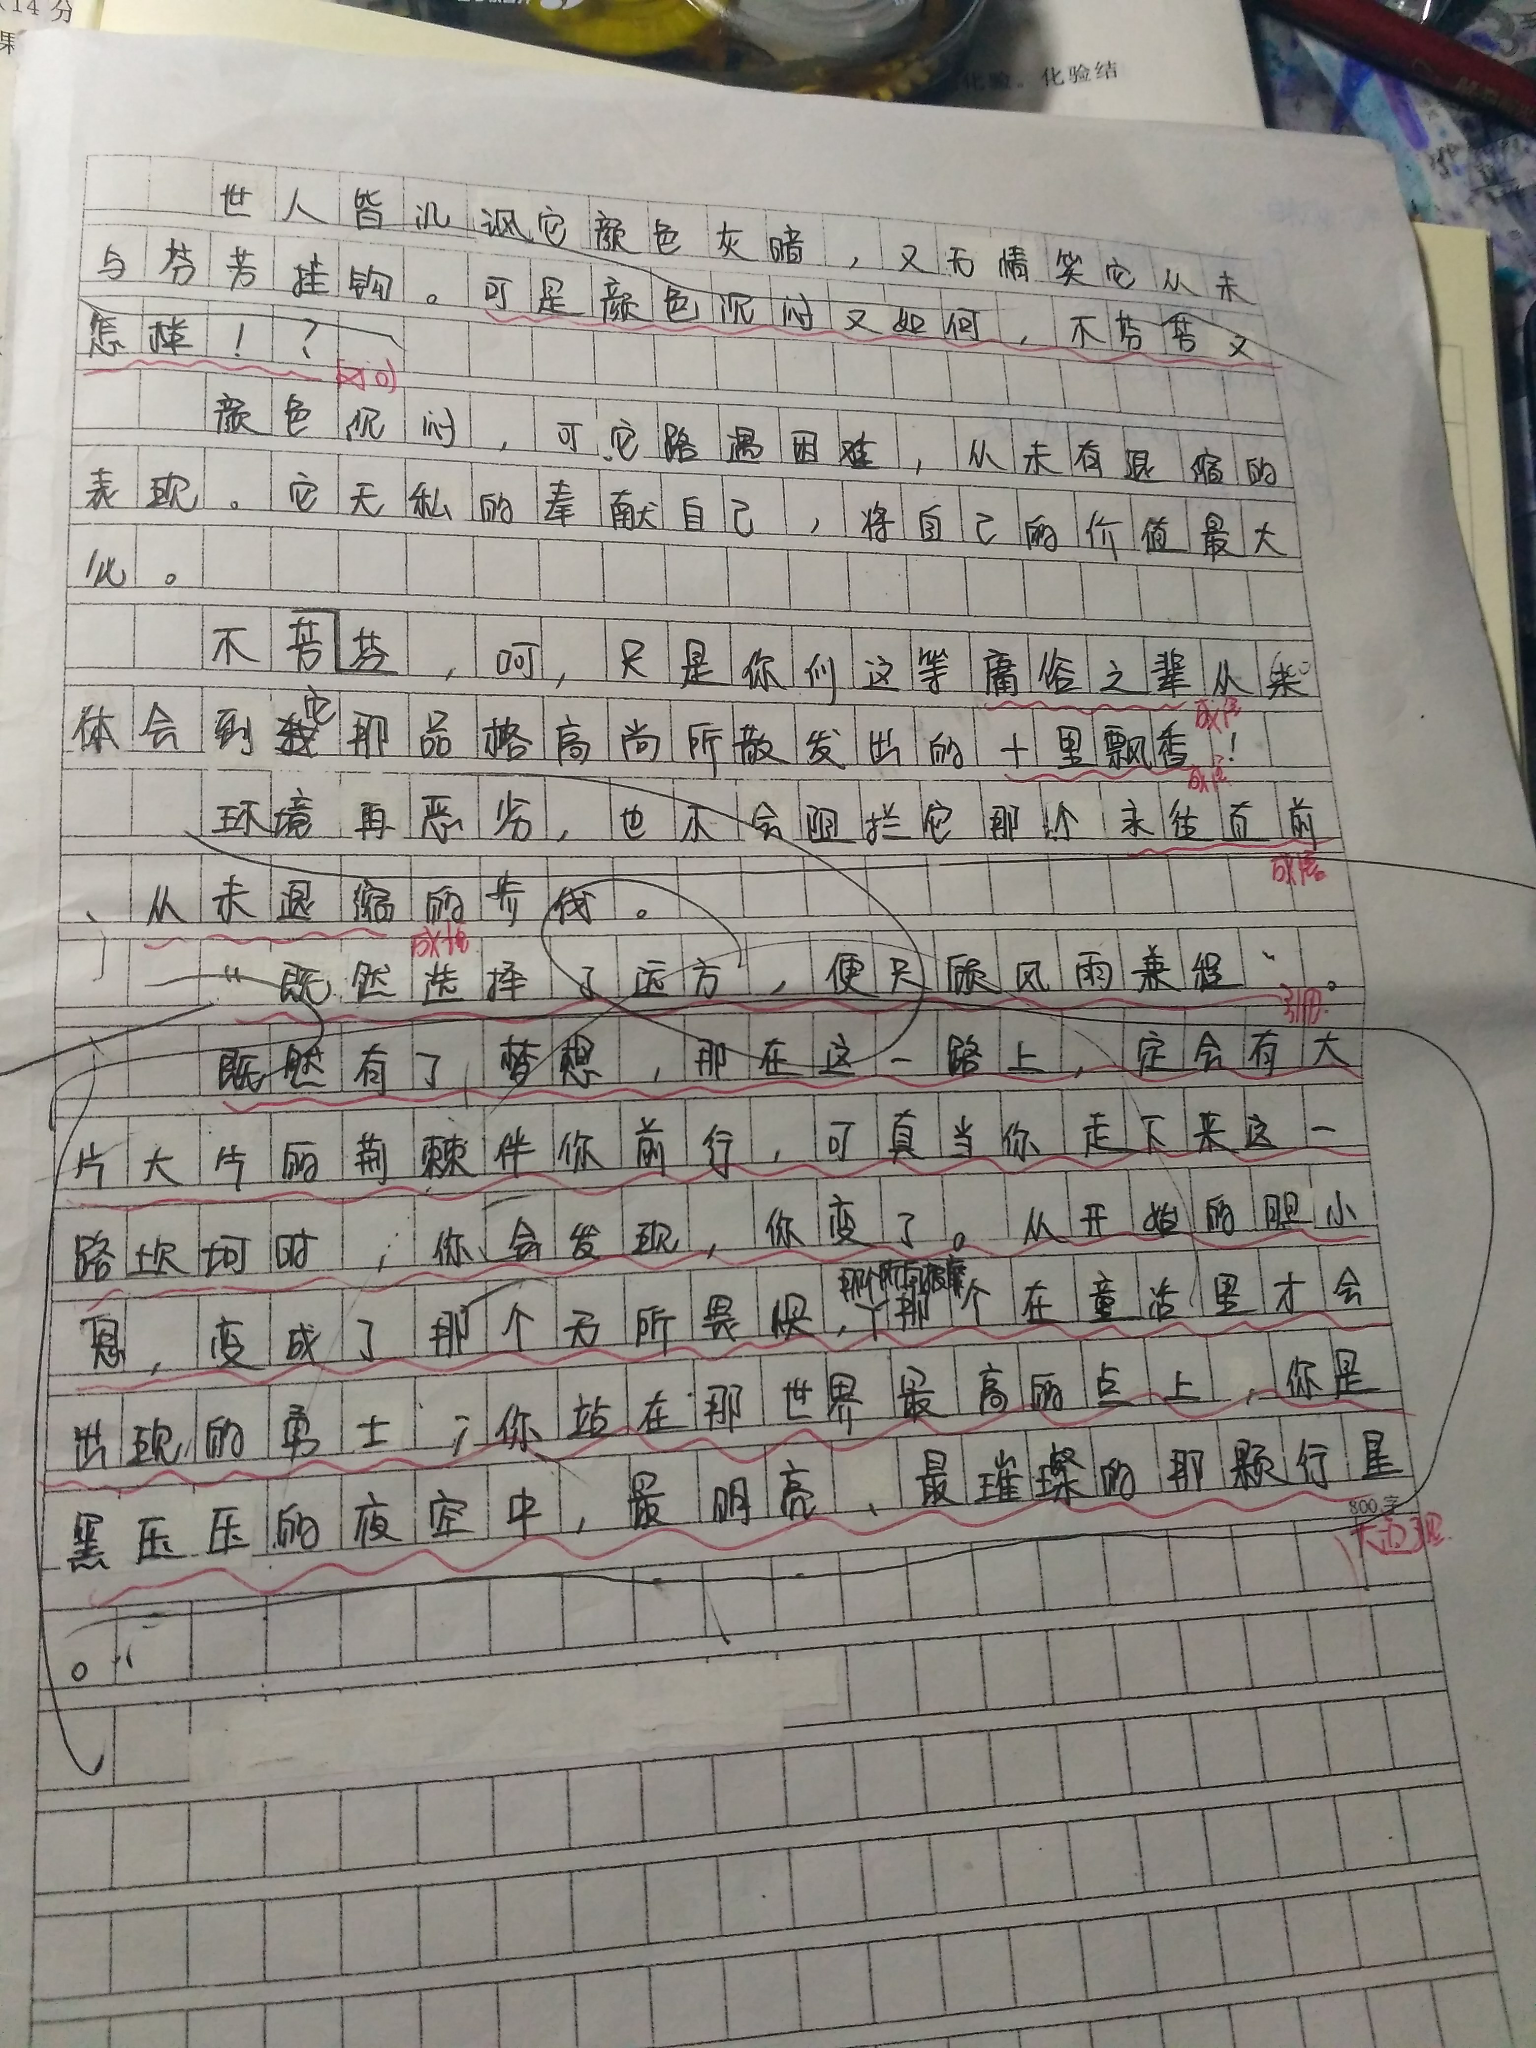 14分
化验。化验结
世人皆讥讽它颜色灰暗，又无情笑它从未
与芬芳挂钩。可是颜色沉闷又如何，不芬芳又
怎样！？
颜色沉闷，可它路遇困难，从未有退缩的
表现。它无私的奉献自己，将自己的价值最大
化。
不芳芬，呵，只是你们这等庸俗之辈从未
成语
体会到它那品格高尚所散发出的十里飘香！
成语
环境再恶劣，也不会阻拦它那个永往直前
成语
、从未退缩的步伐。
成语
“既然选择了远方，便只顾风雨兼程”。
引用
既然有了梦想，那在这一路上，定会有大
片大片的荆棘伴你前行，可真当你走下来这一
路坎坷时，你会发现，你变了。从开始的胆小
鬼，变成了那个无所畏惧，那个在童话里才会
出现的勇士；你站在那世界最高的点上，你是
黑压压的夜空中，最明亮、最璀璨的那颗行星
800字
。